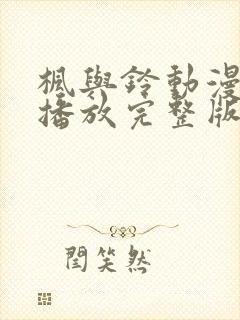 楓與鈴動漫
播放完整版
閆笑然